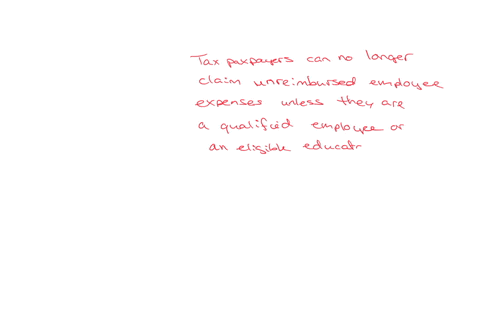 Tax paxpayers can no longer
claim unreimbursed employee
expenses unless they are
a qualified employee or
an eligible educatr